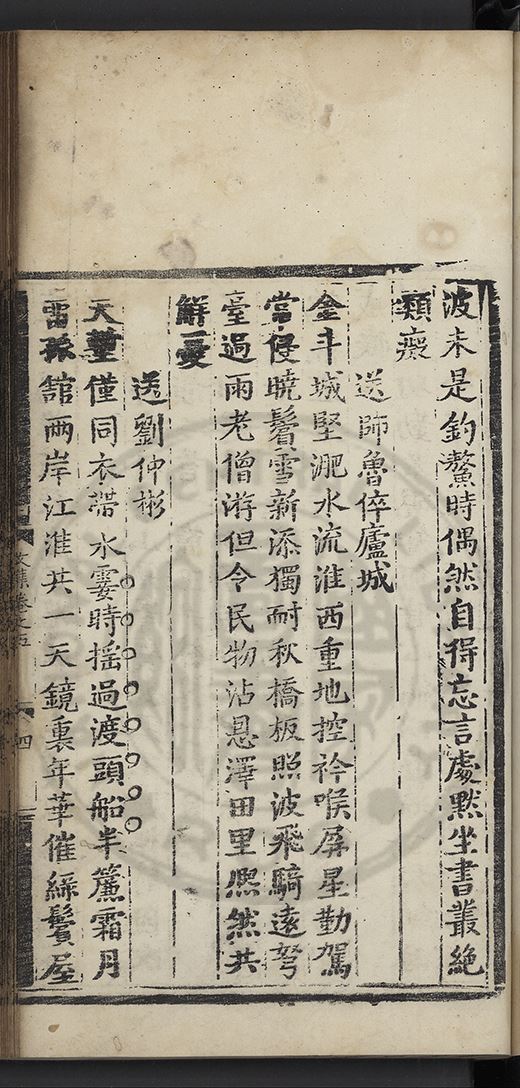 波未是釣鰲時偶然自得忘言處默坐書叢絶
類癡
送師魯倅廬城
金斗城堅淝水流淮西重地控衿喉屏星勤駕
當侵曉鬢雪新添獨耐秋橋板照波飛騎遠弩
臺過雨老僧游但令民物沾恩澤田里熈然共
解憂
送劉仲彬
天壍僅同衣帶水霎時揺過渡頭船半簾霜月
雷孫舘兩岸江淮共一天鏡裏年華催綠鬢屋
文集卷之五
四